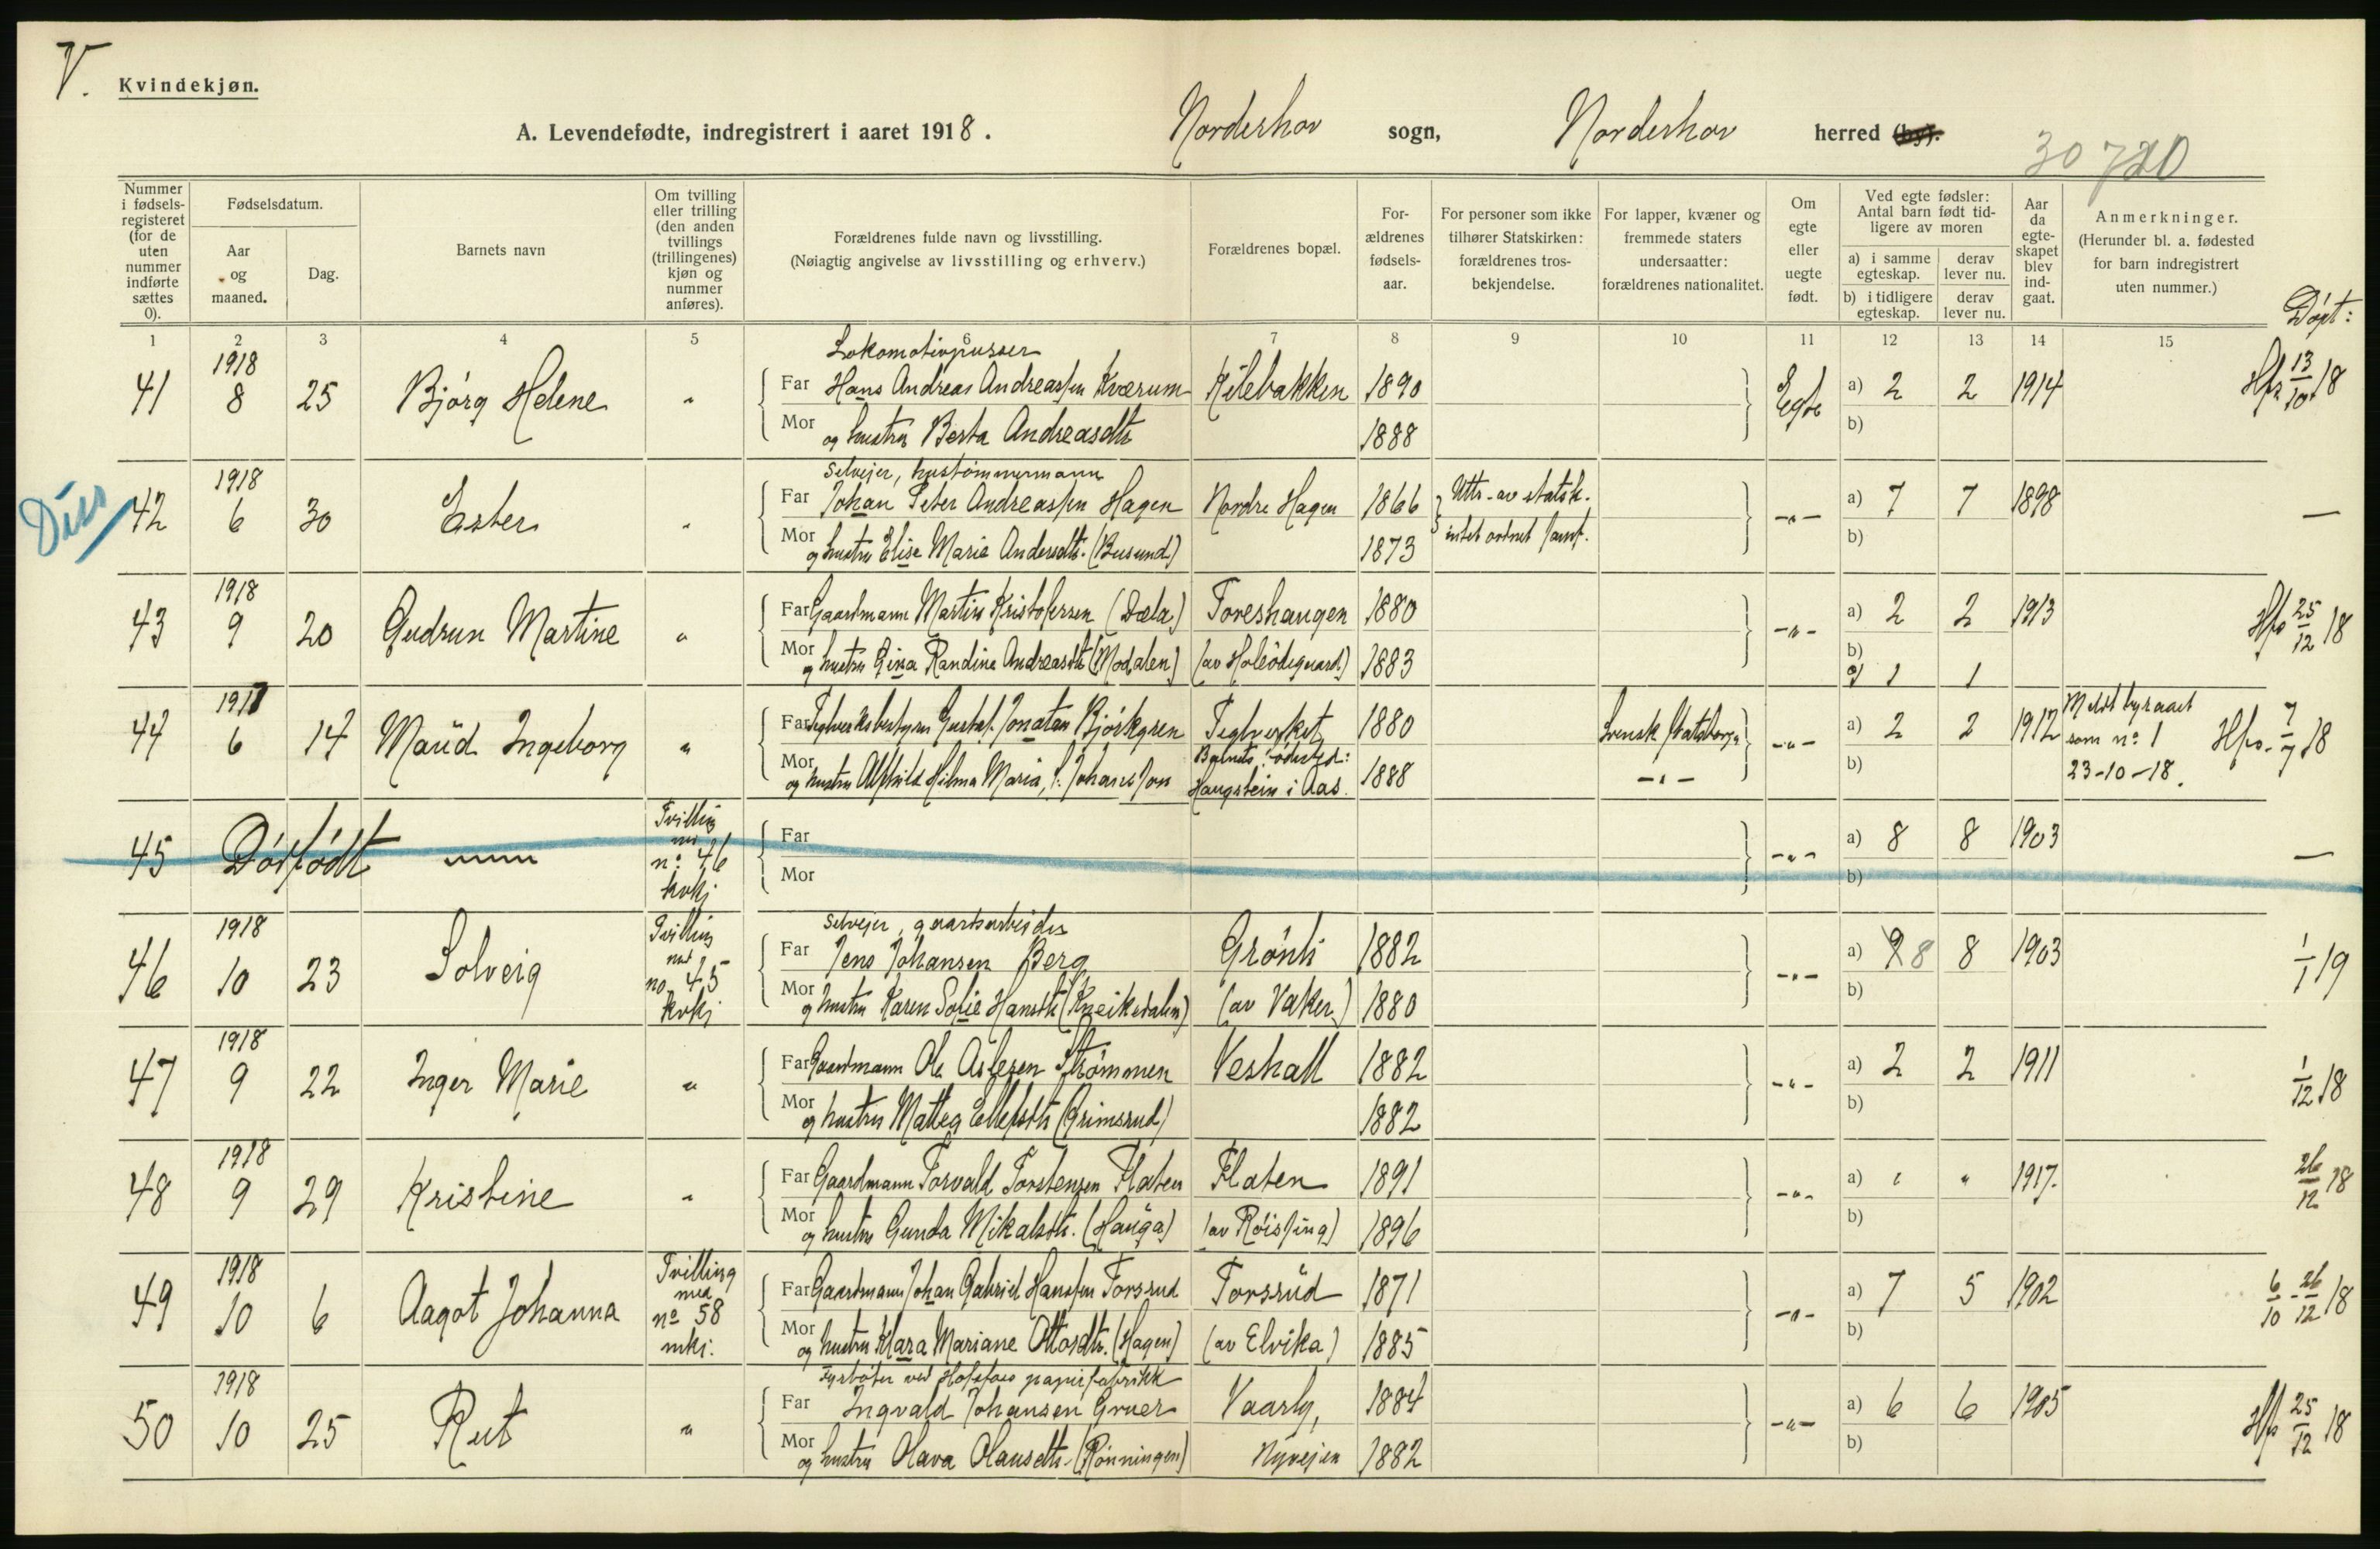 V.
Kvindekjøn.
A. Levendefødte, indregistrert i aaret 1918.
Norderhov sogn, Norderhov herred (by).
30 720
Nummer i fødselsregisteret (for de uten nummer indførte sættes 0).
Fødselsdatum.
Aar og maaned.
Dag.
Barnets navn
Om tvilling eller trilling (den anden tvillings (trillingenes) kjøn og nummer anføres).
Forældrenes fulde navn og livsstilling.
(Nøiagtig angivelse av livsstilling og erhverv.)
Forældrenes bopæl.
Forældrenes fødselsaar.
For personer som ikke tilhører Statskirken: forældrenes trosbekjendelse.
For lapper, kvæner og fremmede staters undersaatter: forældrenes nationalitet.
Om egte eller uegte født.
Ved egte fødsler: Antal barn født tidligere av moren
a) i samme egteskap. derav lever nu.
b) i tidligere egteskap. derav lever nu.
Aar da egteskapet blev indgaat.
Anmerkninger.
(Herunder bl. a. fødested for barn indregistrert uten nummer.)
Døpt:
1 2 3 4 5 6 7 8 9 10 11 12 13 14 15
Lokomotivpusser
41 1918 8 25 Bjørg Helene " Far Hans Andreas Andreassen Kværum Kilebakken 1890 Egte a) 2 2 1914 Hfs 13/10 18
Mor og hustru Berta Andreasdtr 1888 b)
Diss
Selveier, hustømmermann
42 1918 6 30 Ester " Far Johan Peter Andreassen Hagen Nordre Hagen 1866 Uttr. av statsk. -"- a) 7 7 1898 —
Mor og hustru Elise Marie Andersdtr. (Busund) 1873 intet ordnet samf. b)
43 1918 9 20 Gudrun Martine " Far Gaardmann Martin Kristofersen (Dæla) Toreshaugen 1880 -"- a) 2 2 1913 Hfs 25/12 18
Mor og hustru Gina Randine Andreasdtr (Modalen) (av Holeödegaard) 1883 b)
g) 1 1
44 1917 6 14 Maud Ingeborg " Far Teglverksbestyrer Gustaf Jonatan Bjørkgren Teglverket 1880 Svensk statsborger -"- a) 2 2 1912 Meldt byraaet som nº 1 23-10-18. Hfs. 7/7 18
Barnets fødested:
Mor og hustru Alfhild Hilma Maria, f. Johansson Haugstein i Aas. 1888 -"- b)
45 Dødfødt Tvilling med nº 46 kvkj Far -"- a) 8 8 1903 —
Mor b)
Selveier, gaardsarbeider
46 1918 10 23 Solveig Tvilling med no 45 kvkj Far Jens Johansen Berg Grønli 1882 -"- a) 9 8 8 1903 1/1 19
Mor og hustru Karen Sofie Hansdtr (Kneiksdalen) (av Vaker) 1880 b)
47 1918 9 22 Inger Marie " Far Gaardmann Ole Aslesen Strømmen Veshall 1882 -"- a) 2 2 1911 1/12 18
Mor og hustru Mattea Ellefsdtr (Grimsrud) 1882 b)
48 1918 9 29 Kristine " Far Gaardmann Torvald Torstensen Flaten Flaten 1891 -"- a) " " 1917. 26/12 18
Mor og hustru Gunda Mikalsdtr. (Hauga) (av Røissing) 1896 b)
49 1918 10 6 Aagot Johanna Tvilling med nº 58 mkj. Far Gaardmann Johan Gabriel Hanssen Torsrud Torsrud 1871 -"- a) 7 5 1902 6/10 - 26/12 18
Mor og hustru Klara Mariane Ottosdtr. (Hagen) (av Elvika) 1885 b)
Fyrbøter ved Hofsfoss papirfabrikk
50 1918 10 25 Rut " Far Ingvald Johansen Gruer Vaarly, 1884 -"- a) 6 6 1905 Hfs 25/12 18
Mor og hustru Olava Olausdtr. (Rønningen) Nyveien 1882 b)